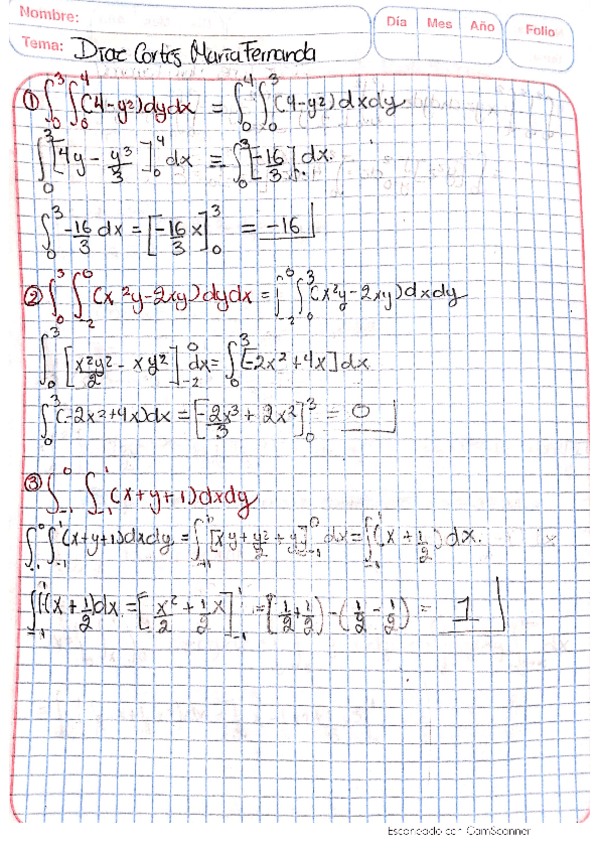 Nombre:
Día Mes Año Folio
Tema: Díaz Cortés María Fernanda
① ∫₀³ ∫₀⁴ (4-y²)dydx = ∫₀⁴ ∫₀³ (4-y²)dxdy
∫₀³ [4y - y³/3]₀⁴ dx = ∫₀³ [-16/3] dx.
∫₀³ -16/3 dx = [-16/3 x]₀³ = -16
② ∫₀³ ∫₋₂⁰ (x²y-2xy)dydx = ∫₋₂⁰ ∫₀³ (x²y-2xy)dxdy
∫₀³ [x²y²/2 - xy²]₋₂⁰ dx = ∫₀³ [-2x²+4x]dx
∫₀³ (-2x²+4x)dx = [-2x³/3 + 2x²]₀³ = 0
③ ∫₋₁⁰ ∫₋₁¹ (x+y+1)dxdy
∫₋₁⁰ ∫₋₁¹ (x+y+1)dxdy = ∫₋₁¹ [xy + y²/2 + y]₋₁⁰ dx = ∫₋₁¹ (x + 1/2) dx.
∫₋₁¹ (x + 1/2)dx = [x²/2 + 1/2 x]₋₁¹ = (1/2 + 1/2) - (1/2 - 1/2) = 1
Escaneado con CamScanner